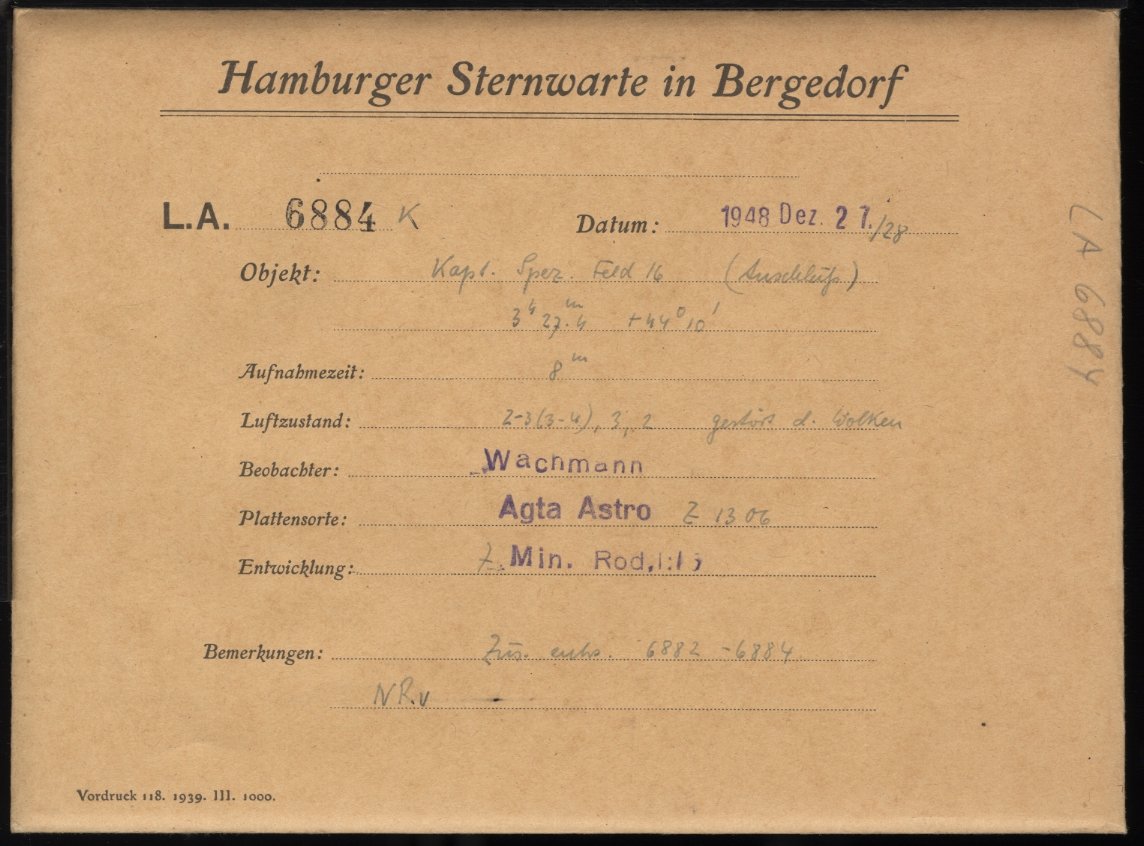 Hamburger Sternwarte in Bergedorf
L.A. 6884 K Datum: 1948 Dez. 27./28
Objekt: Kapt. Spez. Feld 16 (Anschluß)
3h 27m.4 +44° 10'
Aufnahmezeit: 8m
Luftzustand: 2-3(3-4), 3, 2 gestört d. Wolken
Beobachter: Wachmann
Plattensorte: Agfa Astro Z 1306
Entwicklung: 7 Min. Rod. 1:15
Bemerkungen: Zus. entw. 6882 - 6884
NR.v
Vordruck 118. 1939. III. 1000.
LA 6884